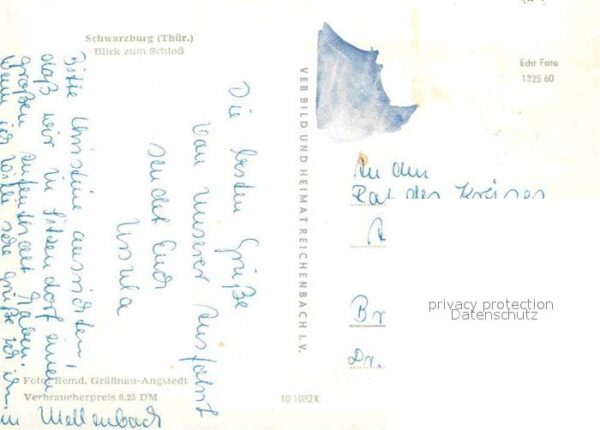 Schwarzburg (Thür.)
Blick zum Schloß
Die besten Grüße
von unserer Ausfahrt
sendet Euch
Ursula
Bitte Christine ausrichten,
daß wir in Sitzendorf einen
großen Aufenthalt haben.
Wenn ich sehe grüße ich ihn
in Mellenbach
Foto: Remd, Gräfinau-Angstedt
Verbraucherpreis 0,25 DM
10 1082 K
VEB BILD UND HEIMAT REICHENBACH I. V.
Echt Foto
1325 60
An den
Rat des Kreises
Br
Dr.
privacy protection
Datenschutz